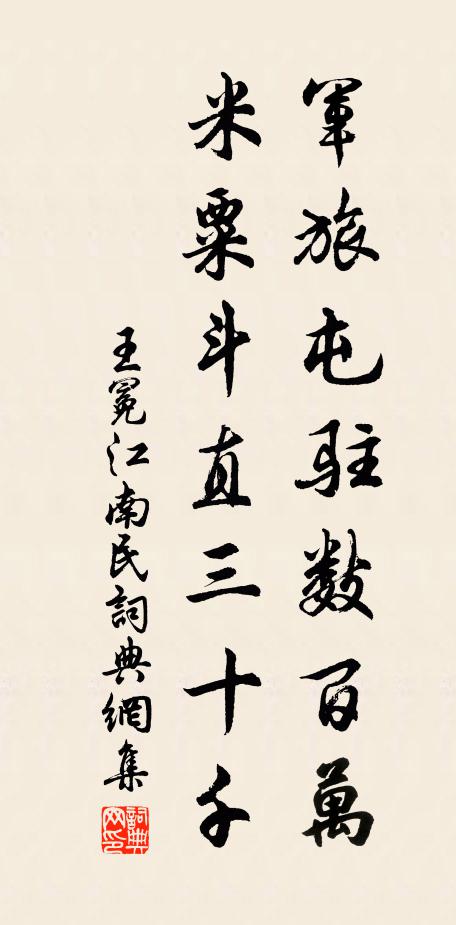 軍旅屯駐數百萬
米粟斗直三十千
王冕江南民詞典網集
詞典網印